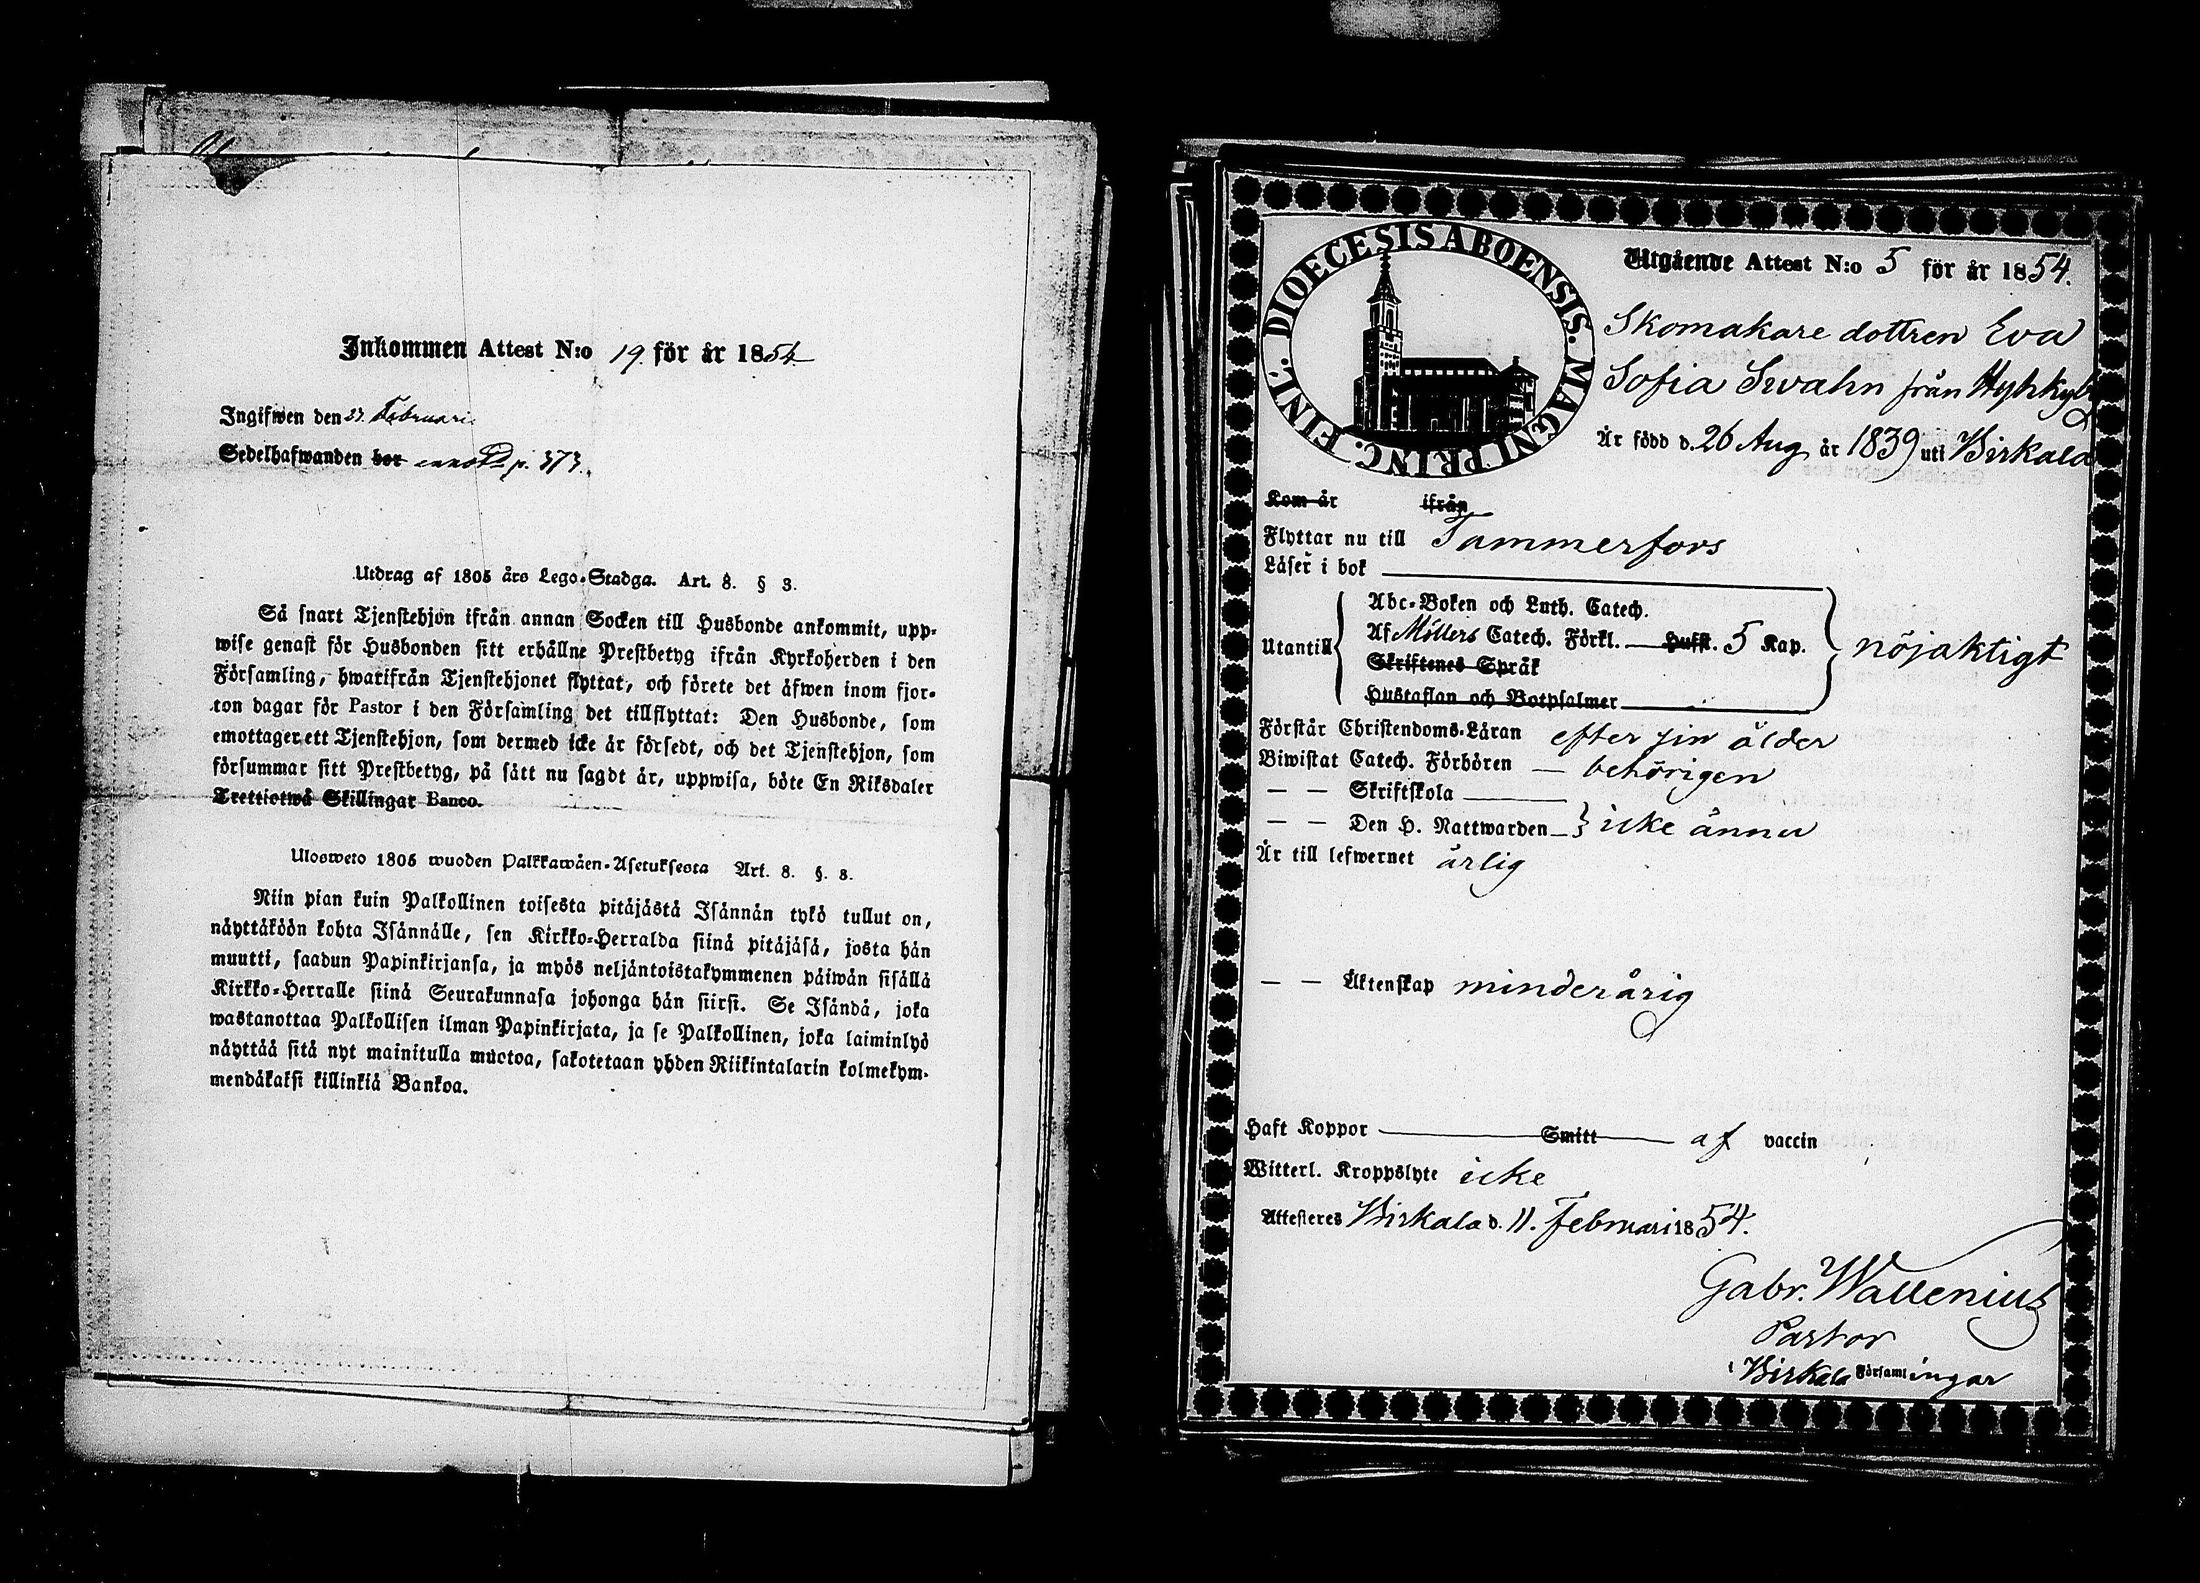 Inkommen Attest N:o 19. för år 1854.
Ingifwen den 23. Februari
Sedelhafwanden bor p. 373.
Utdrag af 1805 års Lego-Stadga. Art. 8. § 3.
Så snart Tjenstehjon ifrån annan Socken till Husbonde ankommit, upp-
wise genast för Husbonden sitt erhållne Prestbetyg ifrån Kyrkoherden i den
Församling, hwarifrån Tjenstehjonet flyttat, och förete det äfwen inom fjor-
ton dagar för Pastor i den Församling det tillflyttat: Den Husbonde, som
emottager ett Tjenstehjon, som dermed icke är försedt, och det Tjenstehjon, som
försummar sitt Prestbetyg, på sätt nu sagdt är, uppwisa, böte En Riksdaler
Trettiotwå Skillingar Banco.
Ulosweto 1805 wuoden Palkkawäen-Asetuksesta Art. 8. §. 3.
Niin pian kuin Palkollinen toisesta pitäjästä Isännän tykö tullut on,
näyttäköön kohta Isännälle, sen Kirkko-Herralda siinä pitäjäsä, josta hän
muutti, saadun Papinkirjansa, ja myös neljäntoistakymmenen päiwän sisällä
Kirkko-Herralle siinä Seurakunnasa johonga hän siirsi. Se Isändä, joka
wastanottaa Palkollisen ilman Papinkirjata, ja se Palkollinen, joka laiminlyö
näyttää sitä nyt mainitulla muotoa, sakotetaan yhden Riikintalarin kolmekym-
mendäkaksi killinkiä Bankoa.
DIOECESIS ABOENSIS. MAGNI PRINC. FINL.
Utgående Attest N:o 5 för år 1854.
Skomakare dottren Eva
Sofia Swahn från Hyhkyby
Är född d. 26 Aug. år 1839 uti Birkala
Kom år ifrån
Flyttar nu till Tammerfors
Läser i bok
Utantill
Abc-Boken och Luth. Catech.
Af Möllers Catech. Förkl. Hufst. 5 Kap. nöjaktigt
Skriftenes Språk
Hustaflan och Botpsalmer
Förstår Christendoms-Läran efter sin ålder
Biwistat Catech. Förhören — behörigen
— — Skriftskola
— — Den H. Nattwarden icke ännu
Är till lefwernet ärlig
— — Äktenskap minderårig
Haft Koppor Smitt af vaccin
Witterl. Kroppslyte icke
Attesteras Birkala d. 11. Februari 1854.
Gabr. Wallenius
Pastor
i Birkala Församlingar